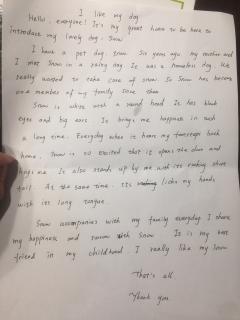 I like my dog
Hello, everyone! It's my great honor to be here to
introduce my lovely dog. Snow
I have a pet dog. Snow. Six years ago my mother and
I met Snow in a rainy day. It was a homeless dog. We
really wanted to take care of snow. So Snow has become
one member of my family since then
Snow is white with a round head It has black
eyes and big ears. It brings me happiness in such
a long time. Everyday when it hears my footsteps back
home. Snow is so excited that it opens the door and
hugs me. It also stands up by me with its short
tail. At the same time. Its licks my hands
with its long tongue.
Snow accompanies with my family everyday I share
my happiness and sorrow with Snow It is my best
friend in my childhood. I really like my Snow
That's all
Thank you